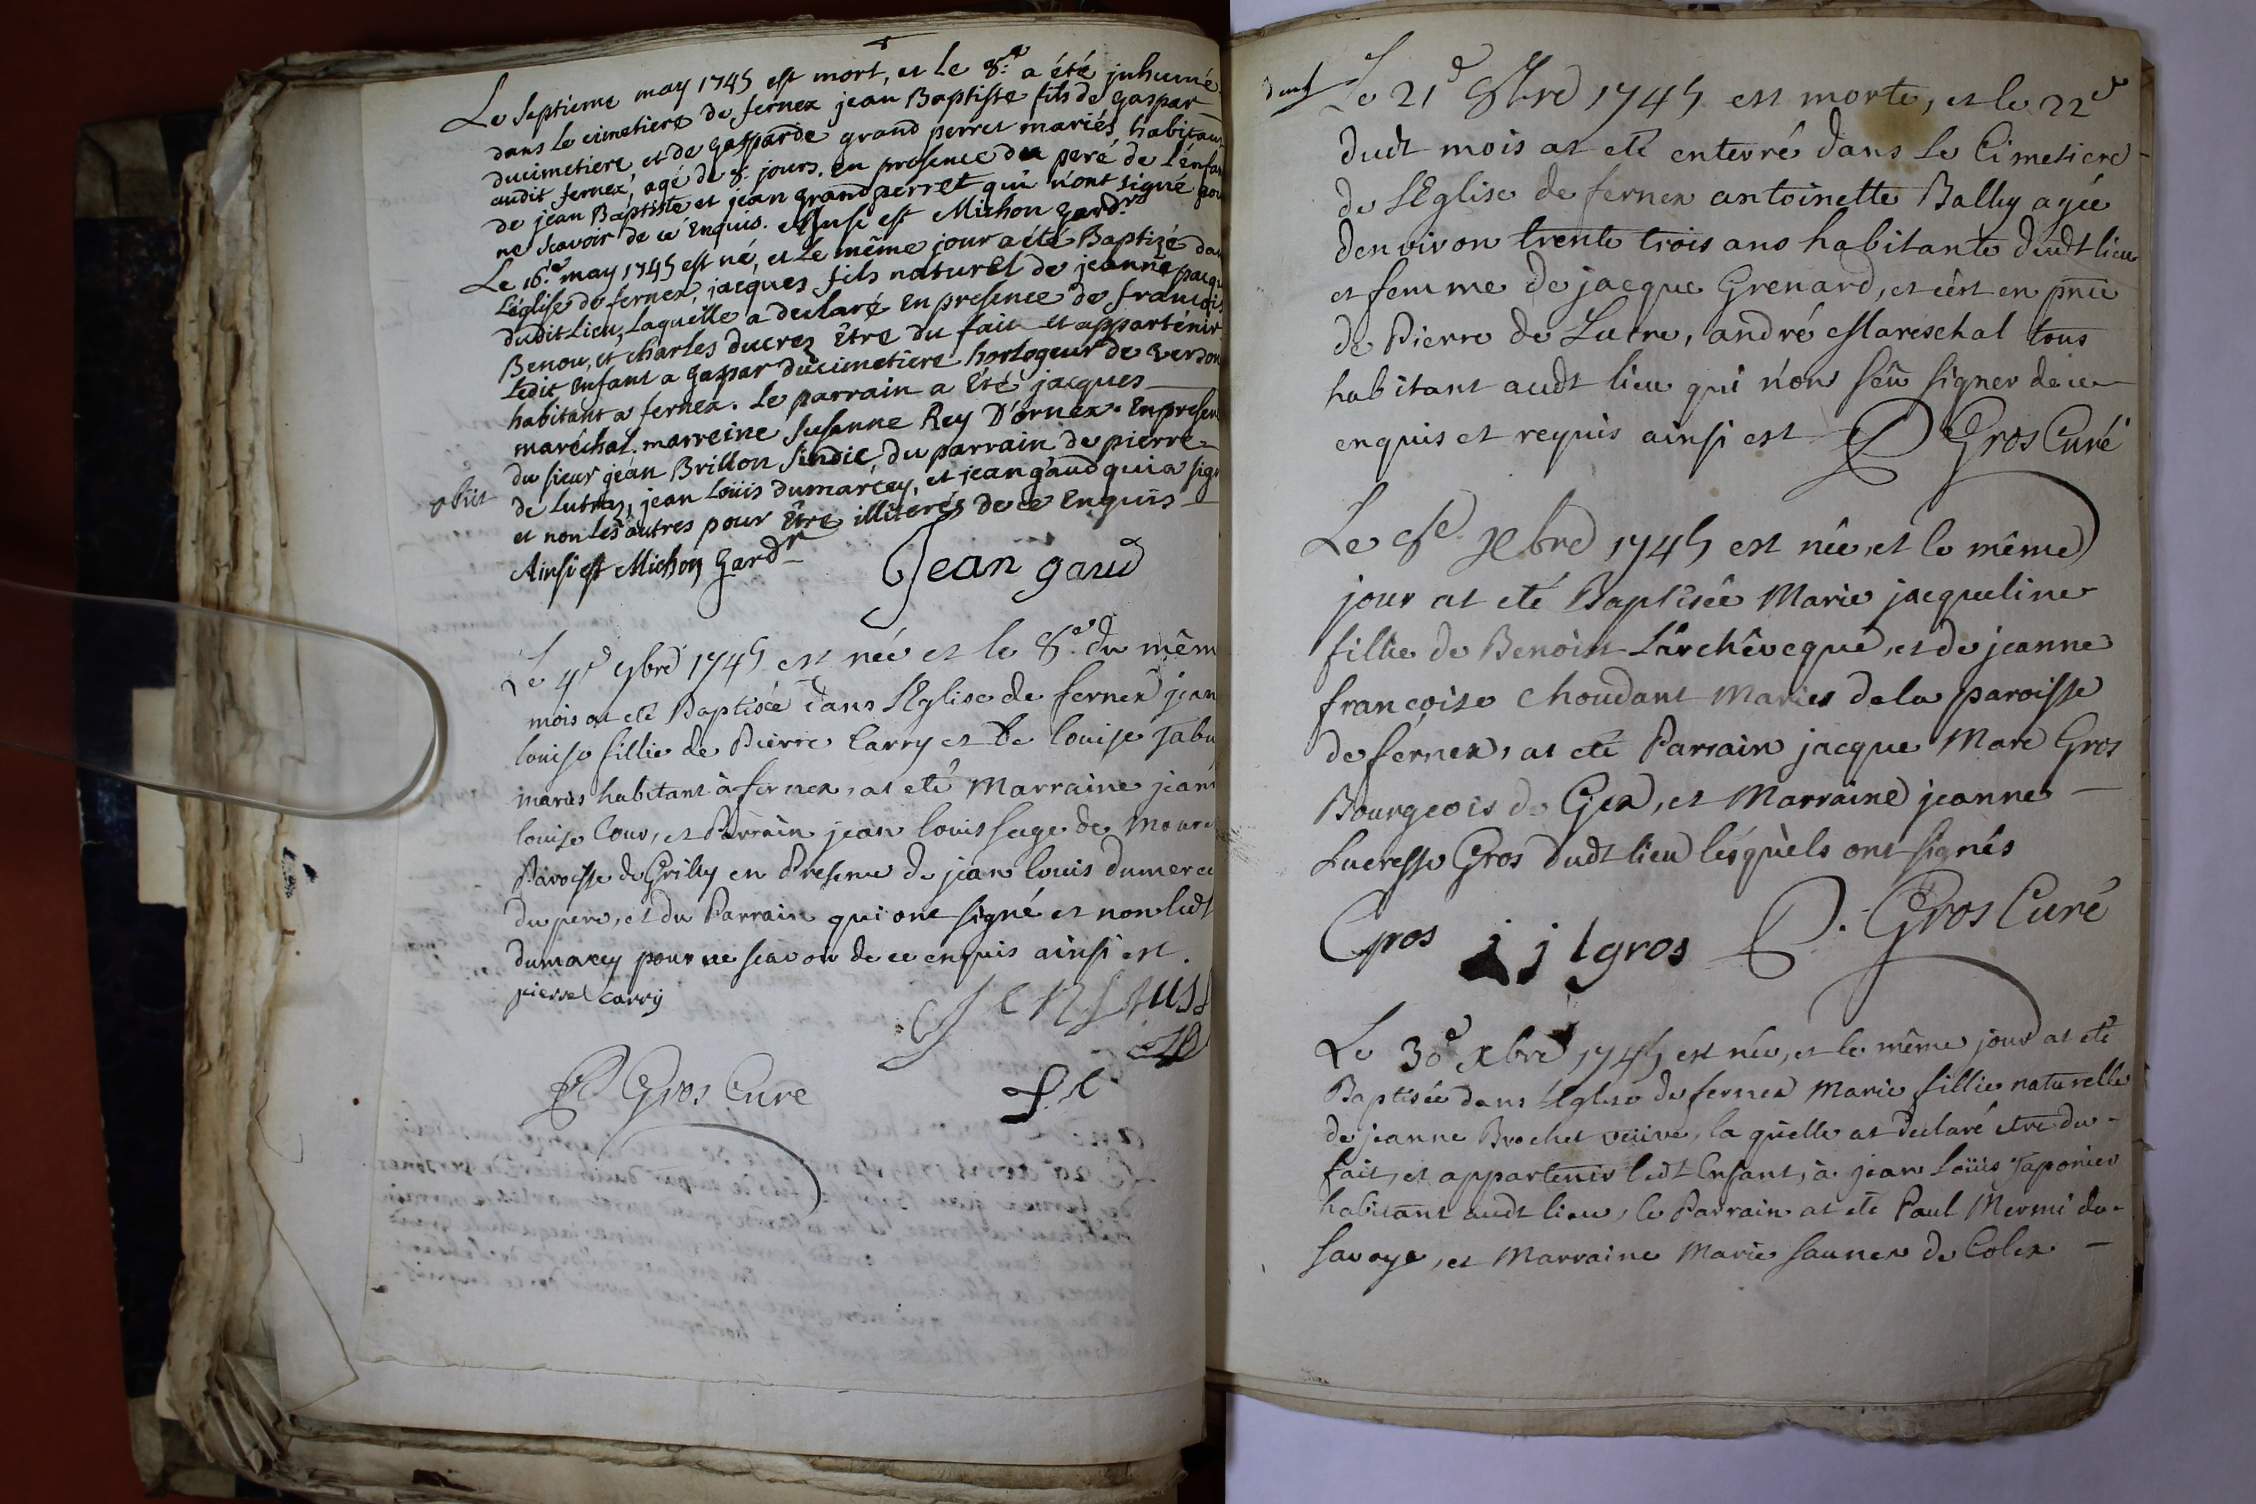 Le septieme may 1745 est mort, et le 8.e a été inhumé
dans le cimetiere de fernex jean Baptiste fils de gaspar
ducimetiere, et de gasparde grand perret mariés habitants
audit fernex, agé de 8. jours. en presence du peré de l'énfan
de jean Baptiste et jean grandperret qui n'ont signé pou
ne scavoir de ce enquis. Ainsi est Michon gard.r
Le 16.e may 1745 est né, et le même jour a été Baptizé da
L'église de fernex, jacques fils naturel de jeanne pacqu
dudit Lieu, Laquelle a declaré en presence de francois
Benou, et charles ducrez être du fait et appartenir
Ledit enfant a gaspar ducimetiere horlogeur de verdon
habitant a fernex. Le parrain a été jacques
maréchal. marreine susanne Rey D'ornex. En presen
du sieur jean Brillon sindic, du parrain de pierre
obiit de Lutrez, jean Loüis dumarcey, et jean gaud qui a sign
et non les autres pour être illiterés de ce enquis
Ainsi est Michon gard.r Jean gaud
Le 4e 9bre 1745 est née et le 8.e du mêm
mois at eté Baptisée dans l'Eglise de fernex jean
louise fillie de Pierre Carry et de louise Tabu
mariés habitant à fernex, at eté Marraine jean
louise Cour, et Parrain jean louis sage de Moure
Paroisse de Grilly en Presence de jean louis dumarce
du pere, et du Parrain qui ont signé et non ludt
dumarcey pour ne scavoir de ce enquis ainsi est.
pierre Carry
P Gros Curé
Le 21e 8bre 1745 est morte, et le 22e
dudt mois at eté enterré dans le Cimetiere
de l'Eglise de fernex antoinette Bally agée
d'environ trente trois ans habitante dudt lieu
et femme de jacque Grenard, et c'est en pnce
de Pierre de Lutre, andré Mareschal tous
habitant audt lieu qui n'on sçû signer de ce
enquis et requis ainsi est P Gros Curé
Le 9bre 1745 est née, et le même
jour at eté Baptisée Marie jacqueline
fillie de Benoist Larchêveque, et de jeanne
francoise Choudant Mariés de la paroisse
de fernex, at eté Parrain jacque Marc Gros
Bourgeois de Gex, et Marraine jeanne
Lucresse Gros dudt lieu lésquèls ont signés
Gros j j l gros P. Gros Curé
Le 30e xbre 1745 est née, et le même jour at eté
Baptisée dans l'Eglise de fernex Marie fillie naturelle
de jeanne Brochet veüive, la quelle at declaré etre du
fait, et appartenir ledt Enfant, à jean Loüis Taponier
habitant audt lieu, le Parrain at eté Paul Mermi de
Savoye, et Marraine Marie saunex de Colex